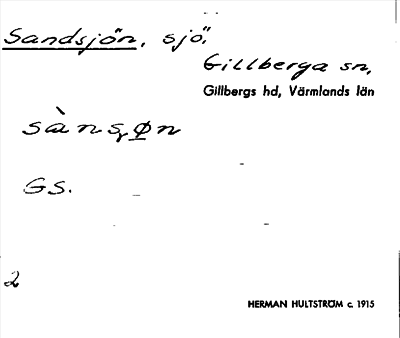 Sandsjön, sjö,
Gillberga sn,
Gillbergs hd, Värmlands län
sànsꞩøn
GS.
2
HERMAN HULTSTRÖM c. 1915